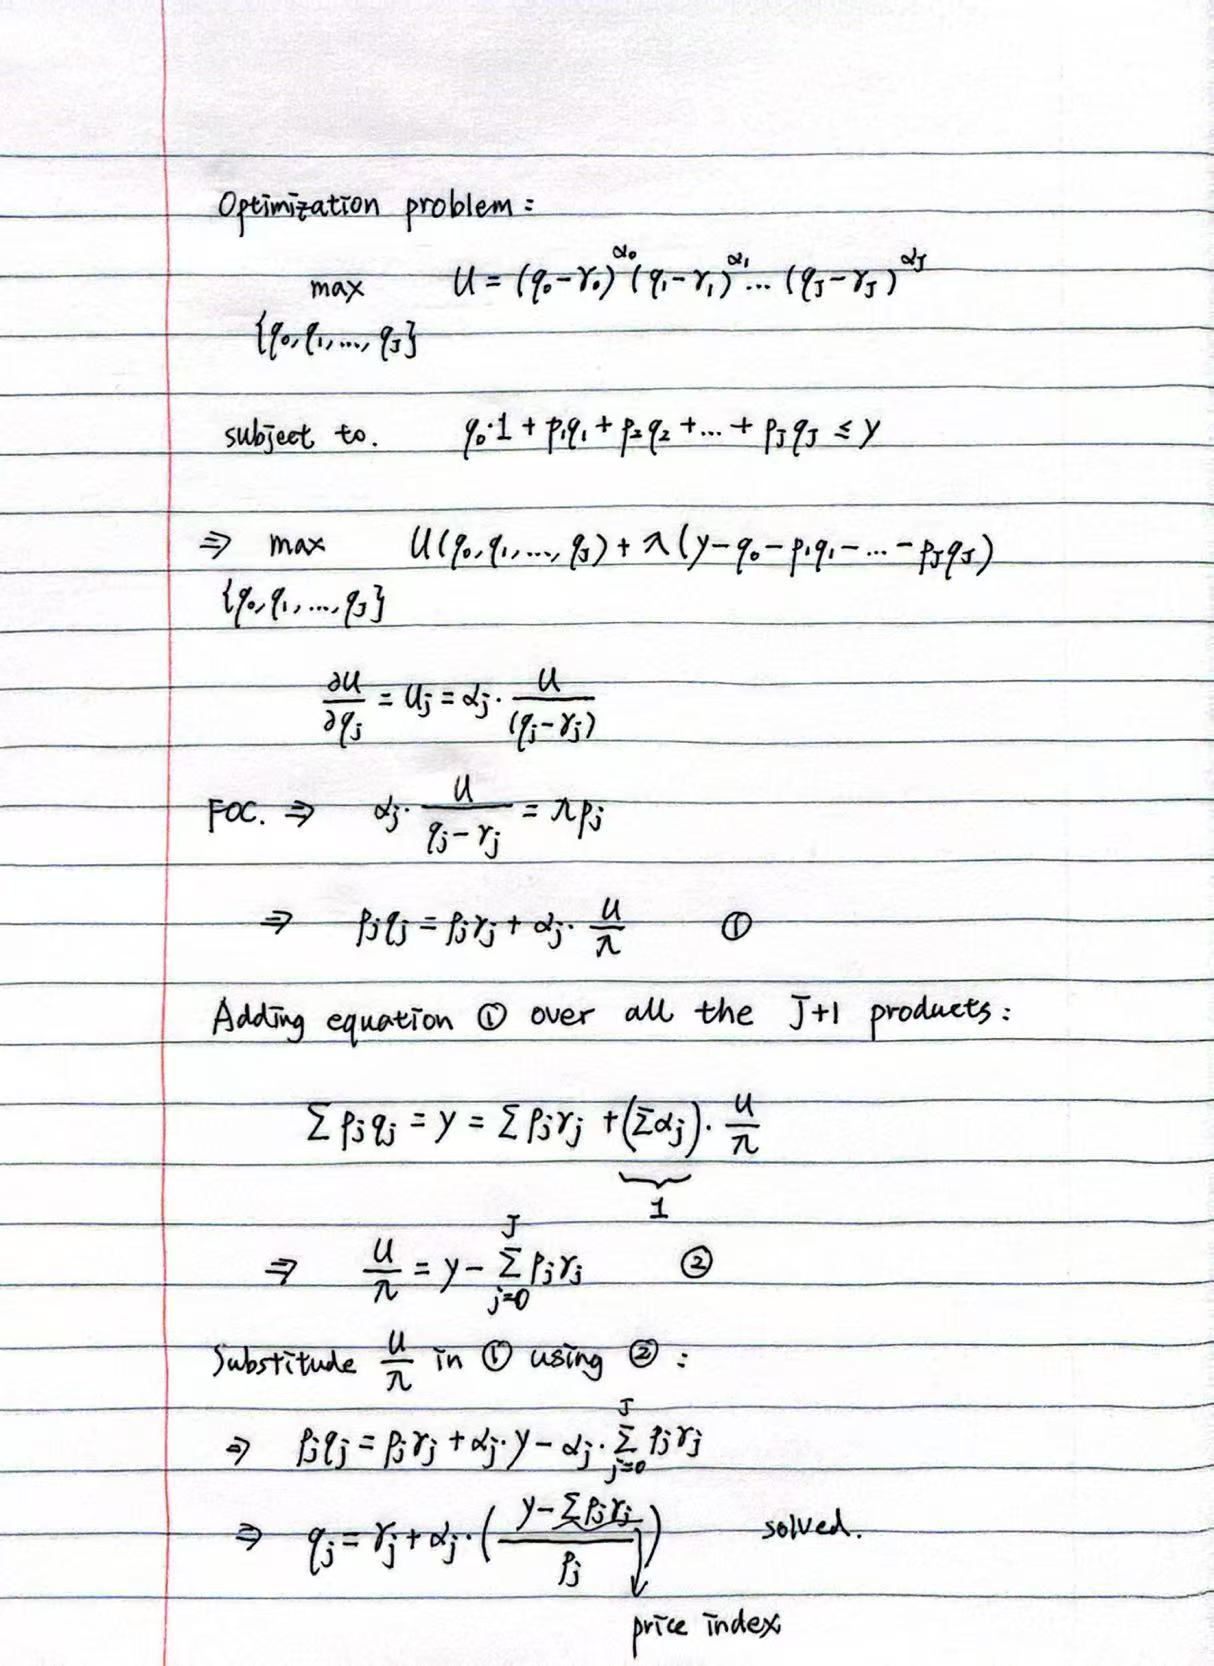 Optimization problem:
max U = (q₀-γ₀)^α₀ (q₁-γ₁)^α₁ ... (q_J-γ_J)^α_J
{q₀, q₁, ..., q_J}
subject to. q₀·1 + p₁q₁ + p₂q₂ + ... + p_J q_J ≤ y
⇒ max U(q₀, q₁, ..., q_J) + λ(y - q₀ - p₁q₁ - ... - p_J q_J)
{q₀, q₁, ..., q_J}
∂U/∂q_j = U_j = α_j · U/(q_j - γ_j)
FOC. ⇒ α_j · U/(q_j - γ_j) = λp_j
⇒ p_j q_j = p_j γ_j + α_j · U/λ ①
Adding equation ① over all the J+1 products:
∑ p_j q_j = y = ∑ p_j γ_j + (∑α_j) · U/λ
1
⇒ U/λ = y - ∑_{j=0}^{J} p_j γ_j ②
Substitude U/λ in ① using ②:
⇒ p_j q_j = p_j γ_j + α_j · y - α_j · ∑_{j=0}^{J} p_j γ_j
⇒ q_j = γ_j + α_j · ((y - ∑ p_j γ_j)/p_j) solved.
price index